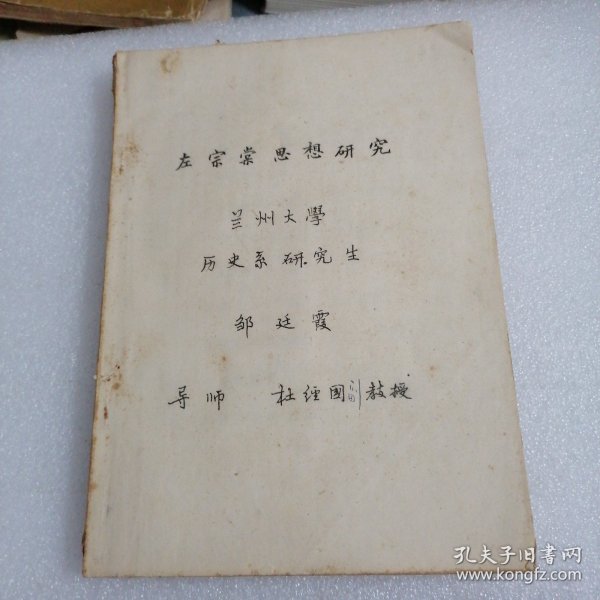 左宗棠思想研究
兰州大學
历史系研究生
邹廷霞
导师 杜经國副教授
孔夫子旧书网
www.kongfz.com